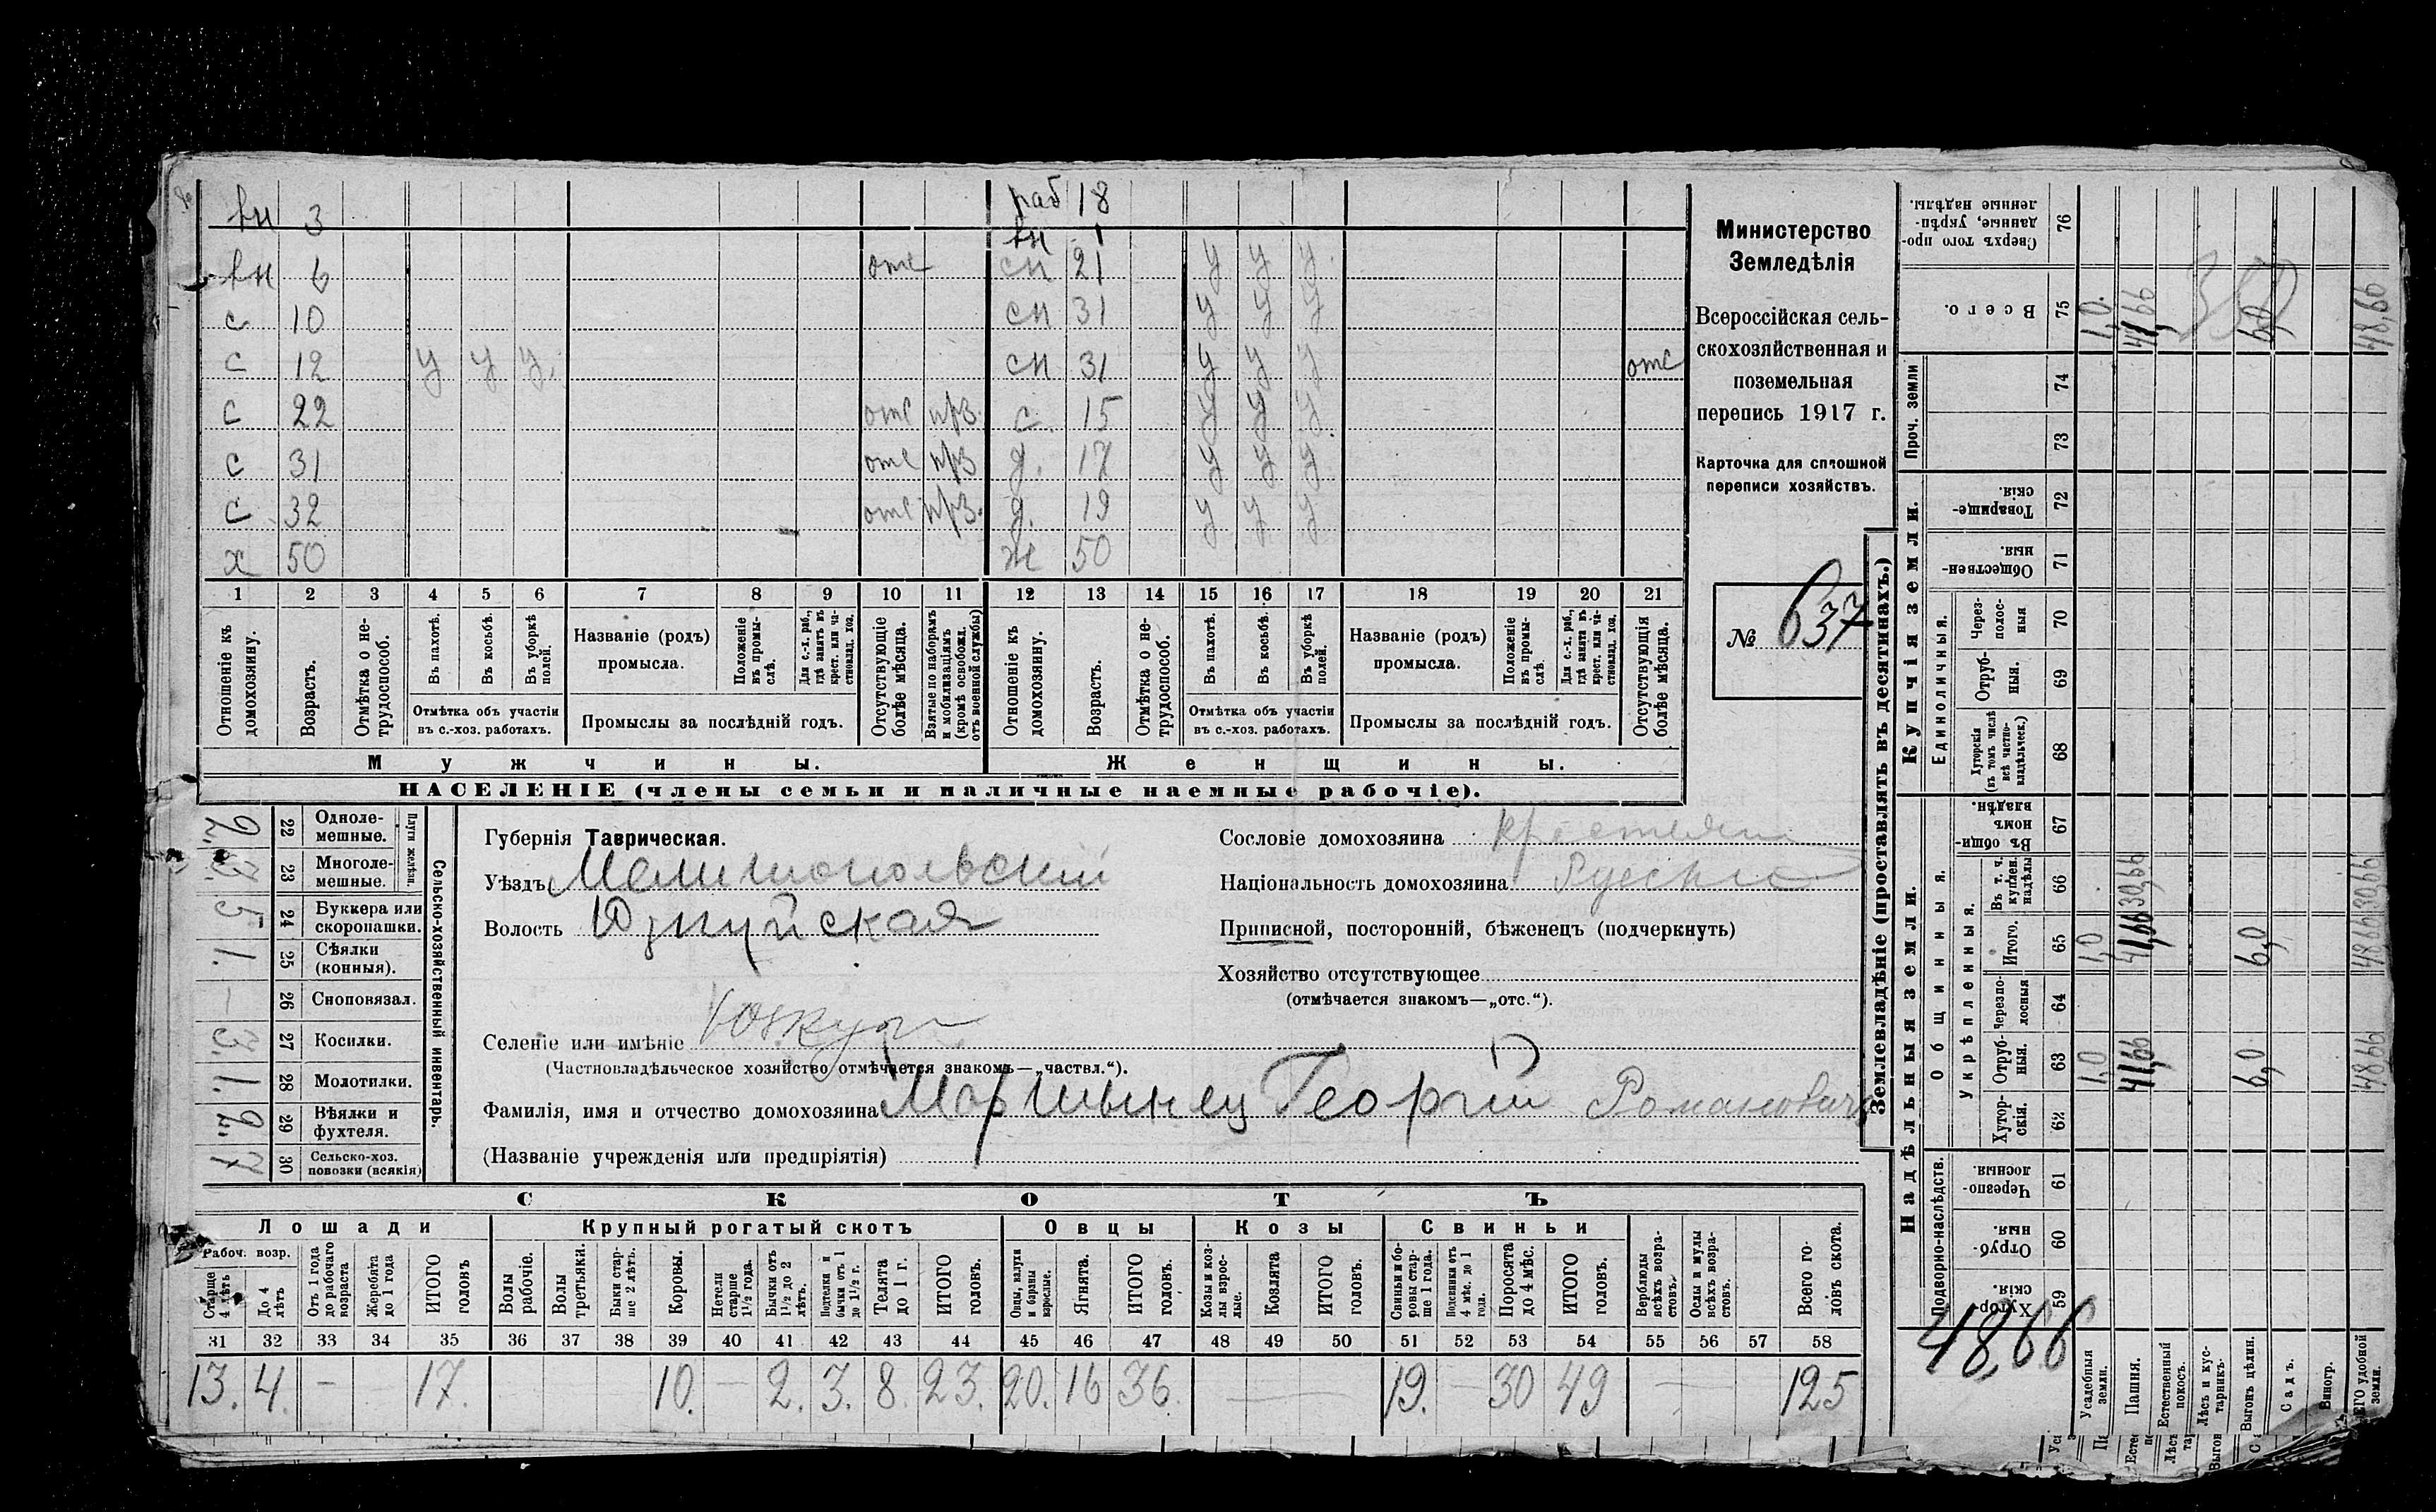 вн 3 раб 18
вн 1
вн 6 отс сн 21 у у у.
с 10 сн 31 у у у
с 12 у у у. сн 31 у у у отс
с 22 отс прз. с. 15 у у у
с 31 отс прз д. 17 у у у
с 32 отс прз. д. 19 у у у
х 50 ж 50
1 2 3 4 5 6 7 8 9 10 11 12 13 14 15 16 17 18 19 20 21
Отношеніе къ домохозяину.
Возрастъ.
Отмѣтка о не-
трудоспособ.
Въ пахотѣ.
Въ косьбѣ.
Въ уборкѣ полей.
Отмѣтка объ участіи
въ с.-хоз. работахъ.
Названіе (родъ)
промысла.
Положеніе въ промы-
слѣ.
Для с.-х. раб., гдѣ занятъ въ крест. или ча-
стновлад. хоз.
Промыслы за послѣдній годъ.
Отсутствующіе болѣе мѣсяца.
Взятые по наборамъ и мобилизаціямъ (кромѣ освобожд. отъ военной службы)
Отношеніе къ домохозяину.
Возрастъ.
Отмѣтка о не-
трудоспособ.
Въ пахотѣ.
Въ косьбѣ.
Въ уборкѣ полей.
Отмѣтка объ участіи
въ с.-хоз. работахъ.
Названіе (родъ)
промысла.
Положеніе въ промы-
слѣ.
Для с.-х. раб., гдѣ занята въ крест. или ча-
стновлад. хоз.
Промыслы за послѣдній годъ.
Отсутствующія болѣе мѣсяца.
Мужчины. Женщины.
НАСЕЛЕНІЕ (члены семьи и наличные наемные рабочіе).
Министерство
Земледѣлія
Всероссійская сель-
скохозяйственная и
поземельная
перепись 1917 г.
Карточка для сплошной
переписи хозяйствъ.
№ 637
Сельско-хозяйственный инвентарь.
Плуги желѣзн.
22 Одноле-
мешные. 2.
23 Многоле-
мешные. 3.
24 Буккера или
скоропашки. 5
25 Сѣялки
(конныя). 1.
26 Сноповязал. —
27 Косилки. 3.
28 Молотилки. 1.
29 Вѣялки и
фухтеля. 2.
30 Сельско-хоз.
повозки (всякія) 7
Губернія Таврическая.
Уѣздъ Мелитопольскій
Волость Юзкуйская
Селеніе или имѣніе Юзкуи
(Частновладѣльческое хозяйство отмѣчается знакомъ—„частвл.“).
Фамилія, имя и отчество домохозяина Мартынец Георгій Романовичъ
(Названіе учрежденія или предпріятія)
Сословіе домохозяина крестьянин
Національность домохозяина Русскій
Приписной, посторонній, бѣженецъ (подчеркнуть)
Хозяйство отсутствующее
(отмѣчается знакомъ—„отс.“).
СКОТЪ
Лошади Крупный рогатый скотъ Овцы Козы Свиньи
Рабоч. возр.
Старше 4 лѣтъ
До 4 лѣтъ
Отъ 1 года до рабочаго возраста
Жеребята до 1 года
ИТОГО головъ
Волы рабочіе.
Волы третьяки.
Быки стар-
ше 2 лѣтъ.
Коровы.
Нетели старше 1½ года.
Бычки отъ 1½ до 2 лѣтъ.
Подтелки и бычки отъ 1 до 1½ г.
Телята до 1 г.
ИТОГО головъ.
Овцы, валухи и бараны взрослые.
Ягнята.
ИТОГО головъ.
Козы и коз-
лы взрос-
лые.
Козлята
ИТОГО головъ.
Свиньи и бо-
ровы стар-
ше 1 года.
Подсвинки отъ 4 мѣс. до 1 года.
Поросята до 4 мѣс.
ИТОГО головъ.
Верблюды всѣхъ возра-
стовъ.
Ослы и мулы всѣхъ возра-
стовъ.
Всего го-
ловъ скота.
31 32 33 34 35 36 37 38 39 40 41 42 43 44 45 46 47 48 49 50 51 52 53 54 55 56 57 58
13. 4. — 17. 10. — 2. 3. 8. 23. 20. 16 36. — — 19. — 30 49 — — 125
Землевладѣніе (проставлять въ десятинахъ.)
Купчія земли.
Надѣльныя земли.
Сверхъ того про-
данные, укрѣп-
ленные надѣлы. 76
Всего. 75 1,0. 41,66 6,0 48,66
Проч. земли 74
73
Товарище-
скія. 72
Обществен-
ныя. 71
Единоличныя.
Через-
полос-
ныя 70
Отруб-
ныя. 69
Хуторскія (въ томъ числѣ всѣ частно-
владѣльческ.) 68
Общинныя.
Въ общин-
номъ владѣн. 67
Укрѣпленныя.
Въ т. ч. куплен. надѣлы 66 30,66 30,66
Итого. 65 1,0 41,66 6,0 48,66
Черезпо-
лосныя 64
Отруб-
ныя. 63 1,0 41,66 6,0 48,66
Хутор-
скія. 62
Подворно-наслѣдств.
Черезпо-
лосныя. 61
Отруб-
ныя. 60
Хутор-
скія. 59
48,66
Усадебныя земли.
Пашня.
Естественный покосъ.
Лѣсъ и кус-
тарникъ.
Выгонъ цѣлин.
Садъ.
Виногр.
удобной земли.